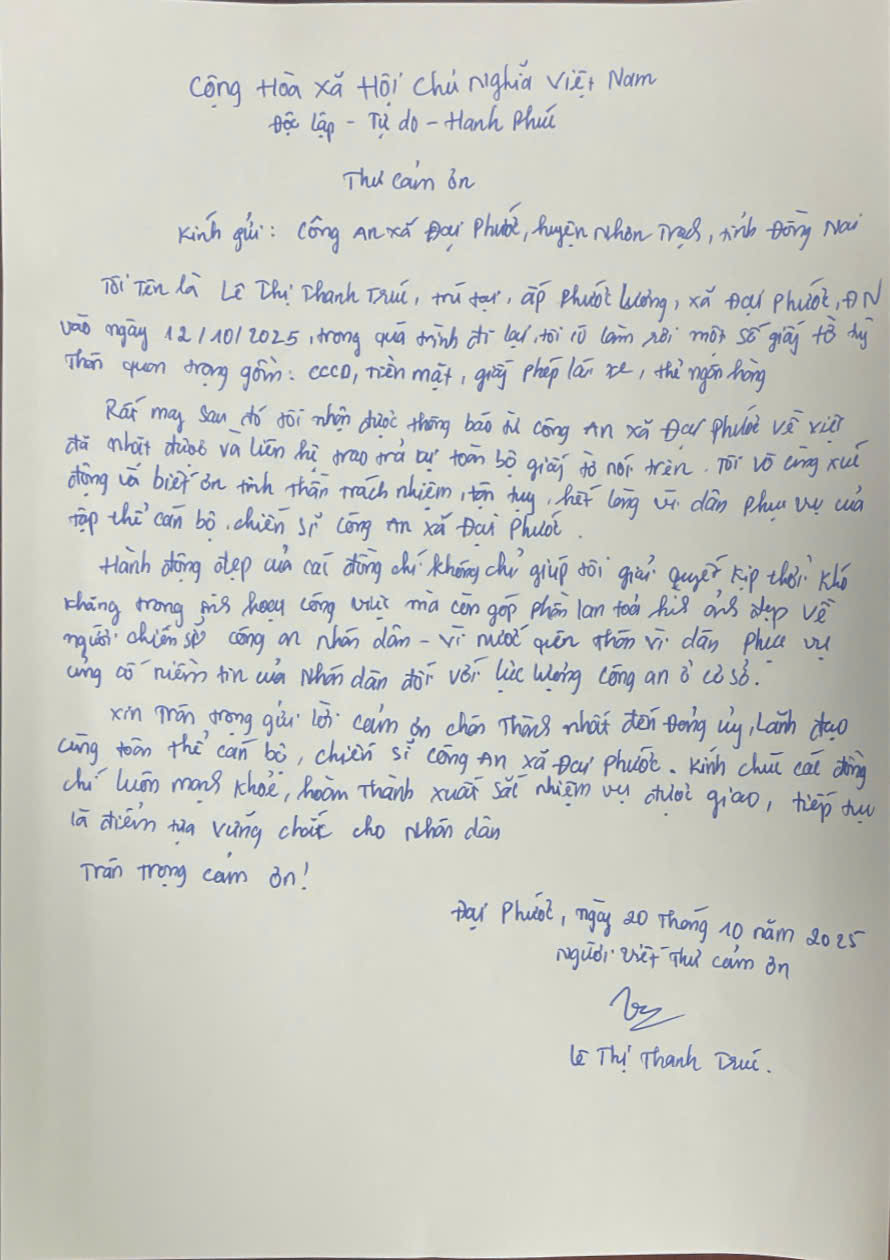 Cộng Hòa Xã Hội Chủ Nghĩa Việt Nam
Độc lập - Tự do - Hạnh Phúc
Thư cảm ơn
Kính gửi: Công An xã Đại Phước, huyện Nhơn Trạch, tỉnh Đồng Nai
Tôi Tên là Lê Thị Thanh Trúc, trú tại, ấp Phước Lương, xã Đại Phước, ĐN
vào ngày 12/10/2025, trong quá trình đi lại, tôi có làm rơi một số giấy tờ tùy
Thân quan trọng gồm: CCCD, Tiền mặt, giấy phép lái xe, thẻ ngân hàng
Rất may sau đó tôi nhận được thông báo từ Công An xã Đại Phước về việc
đã nhặt được và liên hệ trao trả lại toàn bộ giấy tờ nói trên. Tôi vô cùng xúc
động và biết ơn tinh thần trách nhiệm, tận tụy, hết lòng vì dân phục vụ của
tập thể cán bộ, chiến sĩ Công An xã Đại Phước.
Hành động đẹp của các đồng chí không chỉ giúp tôi giải quyết kịp thời khó
khăng trong sinh hoạt công việc mà còn góp phần lan toả hình ảnh đẹp về
người chiến sĩ công an nhân dân - vì nước quên thân vì dân phục vụ
củng cố niềm tin của Nhân dân đối với lực lượng công an ở cơ sở.
Xin Trân trọng gửi lời cảm ơn chân Thành nhất đến Đảng ủy, Lãnh đạo
cùng toàn thể cán bộ, chiến sĩ Công An xã Đại Phước. Kính chúc các đồng
chí luôn mạnh khoẻ, hoàn Thành xuất sắc nhiệm vụ được giao, tiếp tục
là điểm tựa vững chắc cho Nhân dân
Trân trọng cảm ơn!
Đại Phước, ngày 20 Tháng 10 năm 2025
Người viết Thư cảm ơn
Lê Thị Thanh Trúc.